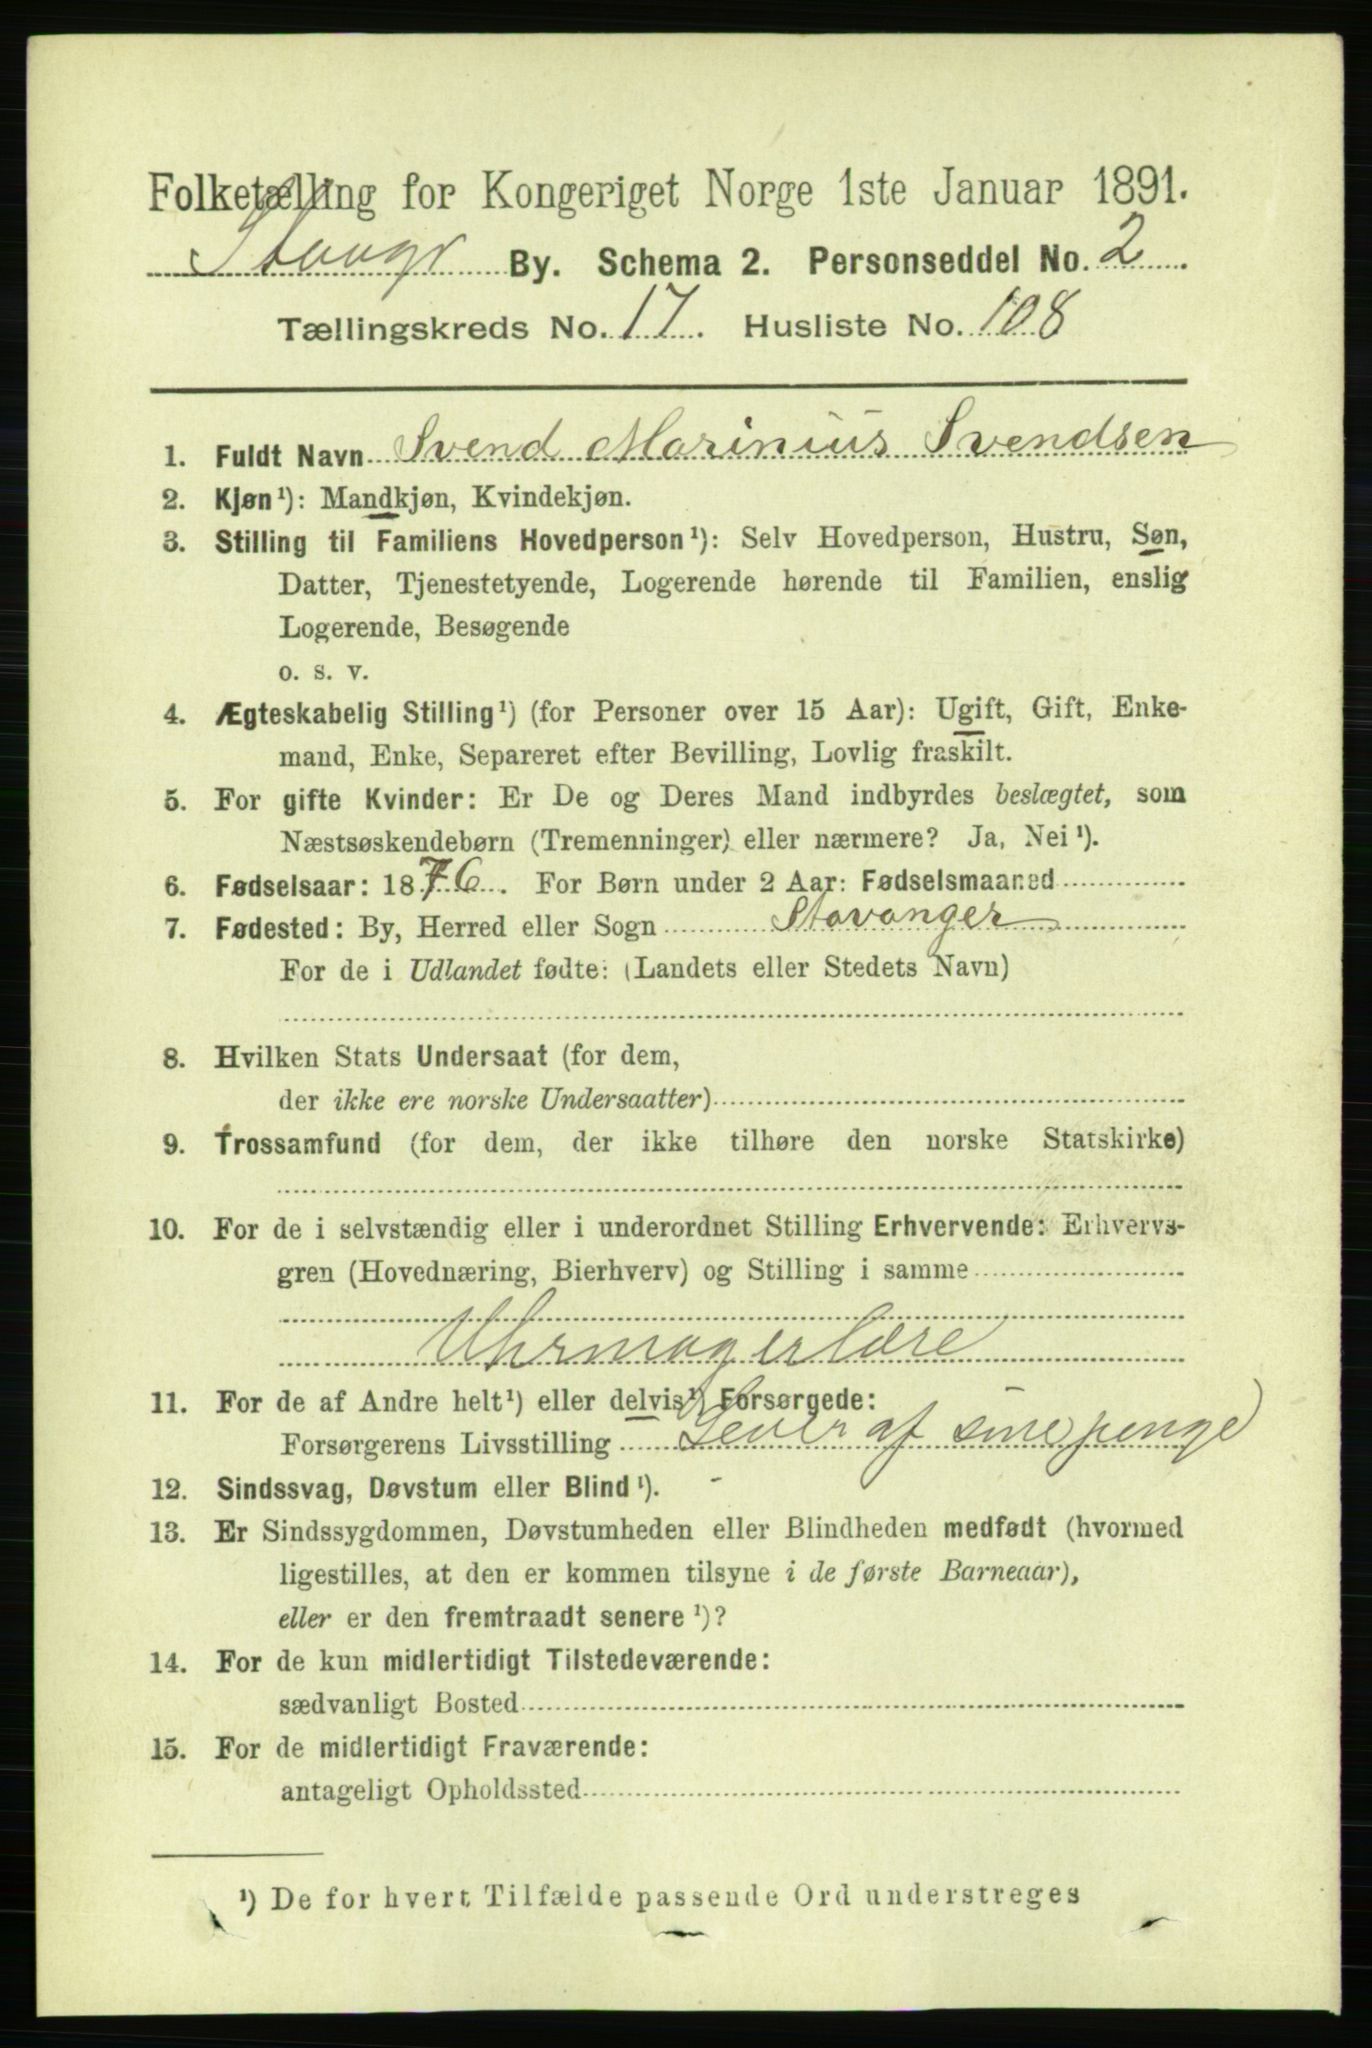 Folketælling for Kongeriget Norge 1ste Januar 1891.
Stavgr By. Schema 2. Personseddel No. 2
Tællingskreds No. 17. Husliste No. 108
1. Fuldt Navn Svend Marinius Svendsen
2. Kjøn¹): Mandkjøn, Kvindekjøn.
3. Stilling til Familiens Hovedperson¹): Selv Hovedperson, Hustru, Søn,
Datter, Tjenestetyende, Logerende hørende til Familien, enslig
Logerende, Besøgende
o. s. v.
4. Ægteskabelig Stilling¹) (for Personer over 15 Aar): Ugift, Gift, Enke-
mand, Enke, Separeret efter Bevilling, Lovlig fraskilt.
5. For gifte Kvinder: Er De og Deres Mand indbyrdes beslægtet, som
Næstsøskendebørn (Tremenninger) eller nærmere? Ja, Nei¹).
6. Fødselsaar: 1876. For Børn under 2 Aar: Fødselsmaaned
7. Fødested: By, Herred eller Sogn Stavanger
For de i Udlandet fødte: (Landets eller Stedets Navn)
8. Hvilken Stats Undersaat (for dem,
der ikke ere norske Undersaatter)
9. Trossamfund (for dem, der ikke tilhøre den norske Statskirke)
10. For de i selvstændig eller i underordnet Stilling Erhvervende: Erhvervs-
gren (Hovednæring, Bierhverv) og Stilling i samme
Uhrmagerlære
11. For de af Andre helt¹) eller delvis¹) Forsørgede:
Forsørgerens Livsstilling Lever af sine penge
12. Sindssvag, Døvstum eller Blind¹). -
13. Er Sindssygdommen, Døvstumheden eller Blindheden medfødt (hvormed
ligestilles, at den er kommen tilsyne i de første Barneaar),
eller er den fremtraadt senere¹)?
14. For de kun midlertidigt Tilstedeværende:
sædvanligt Bosted
15. For de midlertidigt Fraværende:
antageligt Opholdssted
¹) De for hvert Tilfælde passende Ord understreges